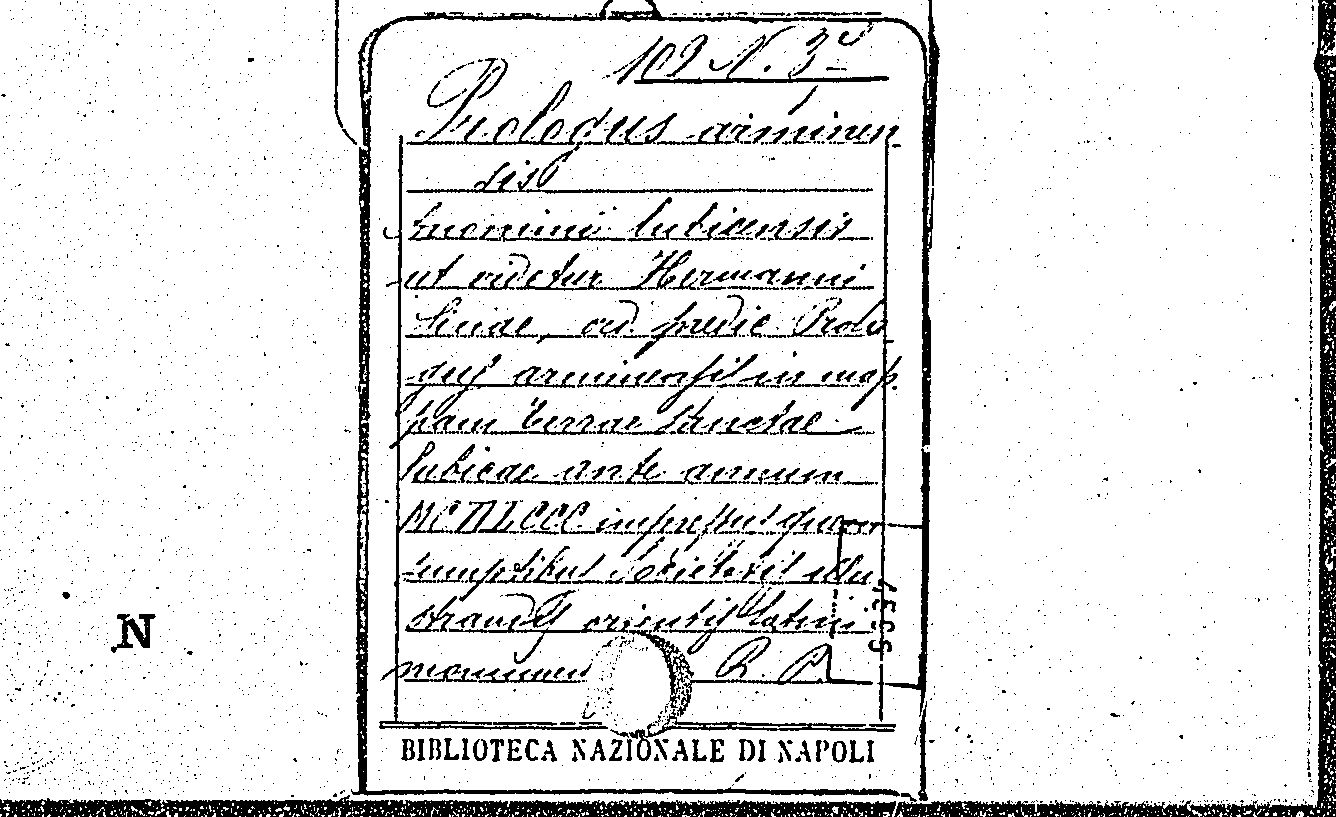 109 N. 3
Prologus ariminen
sis
Anonimi lubicensis
ut videtur Hermanni
ord. predic Prolo
guss arminensis in map
pam terrae sanctae
lubicae ante annum
impressus
sumptibus Societatis illu
strandis orientis latini
monumen R. P.
5337
N
BIBLIOTECA NAZIONALE DI NAPOLI